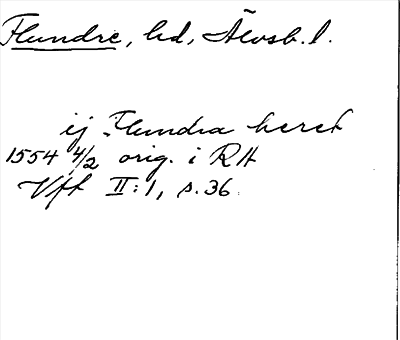 Flundre, hd, Älvsb. l.
ij Flundra heret
1554 4/2 orig. i RA
Vff II:1, s. 36.